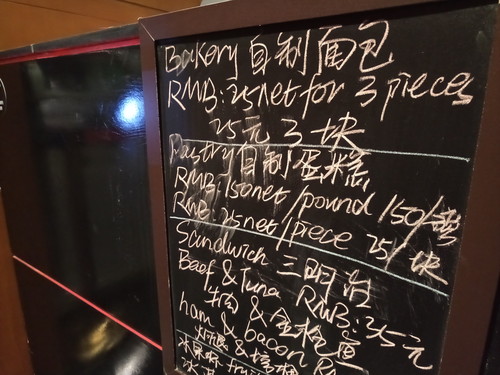 Bakery 自制面包
RMB:25net for 3 pieces
25元3块
Pastry 自制蛋糕
RMB:150net/pound 150/磅
RMB:25net/piece 25/块
Sandwich 三明治
Beef & Tuna RMB:35元
牛肉 & 金枪鱼
ham & bacon
火腿 & 培根